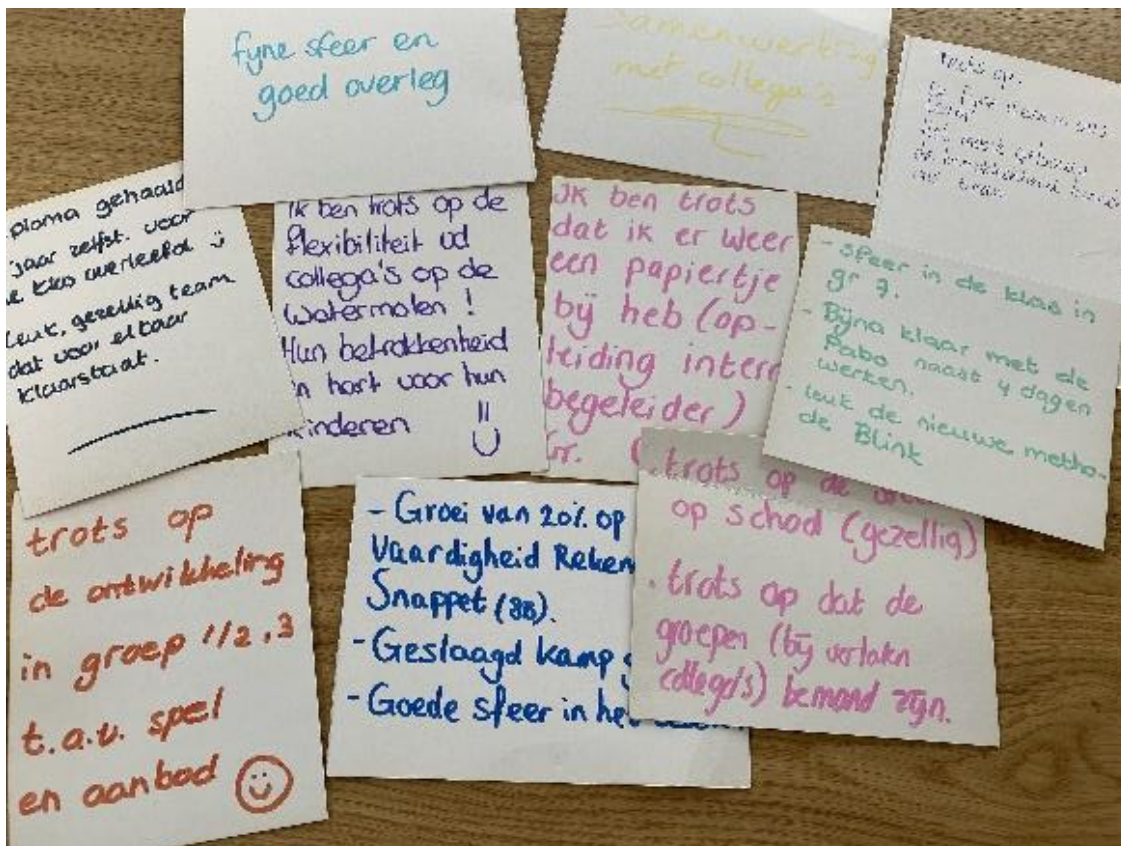 fyne sfeer en
goed overleg
Samenwerking
met collega's
trots op:
ploma gehaald
jaar zelfst. voor
klas overleefd
leuk, gezellig team
dat voor elkaar
klaarstaat.
Ik ben trots op de
flexibiliteit vd
collega's op de
Watermolen !
Hun betrokkenheid
'n hart voor hun
kinderen
Ik ben trots
dat ik er weer
een papiertje
bij heb (op-
leiding intern
begeleider)
Gr.
- sfeer in de klas in
gr 7.
- Bijna klaar met de
Pabo naast 4 dagen
werken.
- leuk de nieuwe metho-
de Blink
trots op
de ontwikkeling
in groep 1/2, 3
t.a.v. spel
en aanbod
- Groei van 20% op
Vaardigheid Reken
Snappet (8B).
- Geslaagd kamp
- Goede sfeer in het
. trots op de
op school (gezellig)
. trots op dat de
groepen (bij
collega's) bemand zijn.